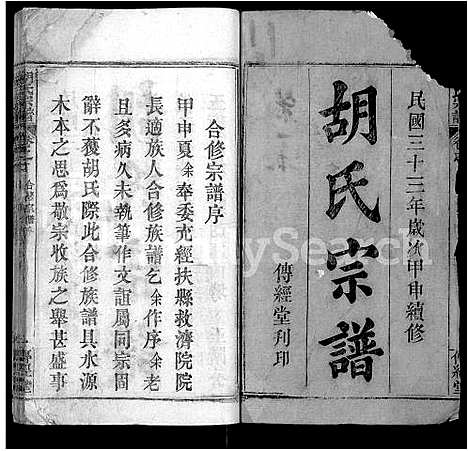 民國三十三年歲次甲申續修
胡氏宗譜
傳經堂刊印
合修宗譜序
甲申夏余奉委充經扶縣救濟院院
長適族人合修族譜乞余作序余老
且多病久未執筆作文誼屬同宗固
辭不獲胡氏際此合修族譜具水源
木本之思爲敬宗收族之舉甚盛事
傳經堂